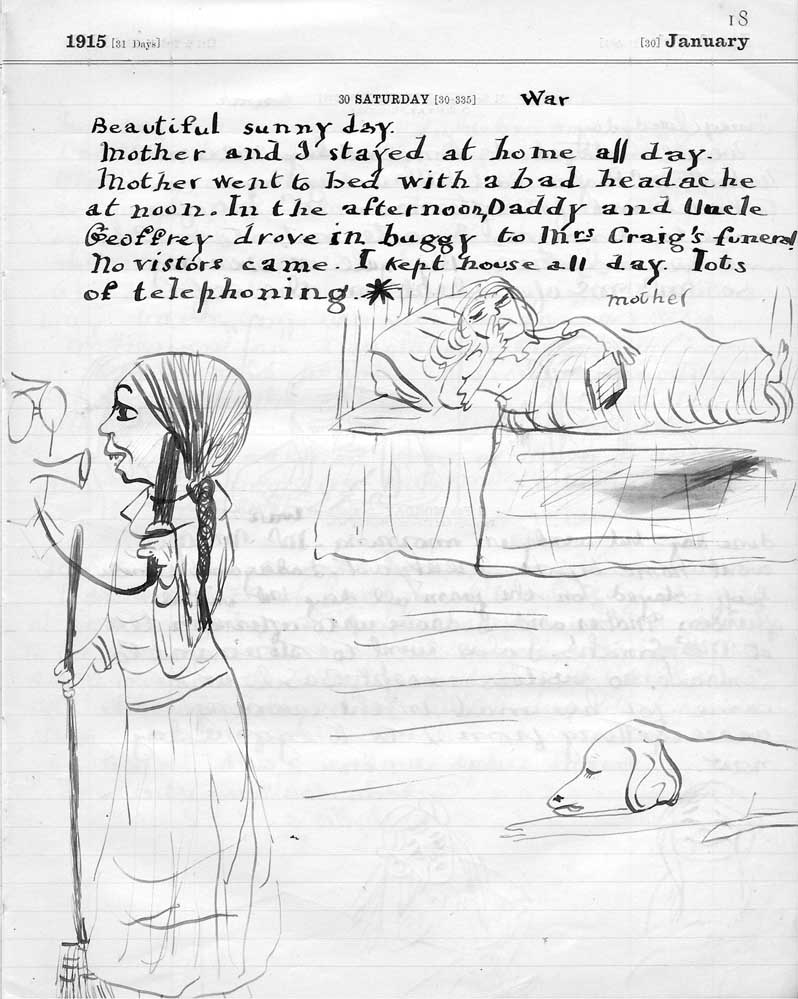 18
1915 [31 Days] [30] January
30 SATURDAY [30-335] War
Beautiful sunny day.
Mother and I stayed at home all day.
Mother went to bed with a bad headache
at noon. In the afternoon, Daddy and Uncle
Geoffrey drove in buggy to Mrs Craig's funeral
No vistors came. I kept house all day. lots
of telephoning.
mother